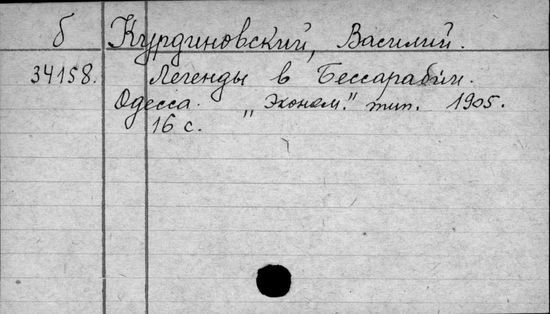 б Курдиновский, Василий.
34158. Легенды в Бессарабии.
Одесса. "Эконом." тип. 1905.
16 с.